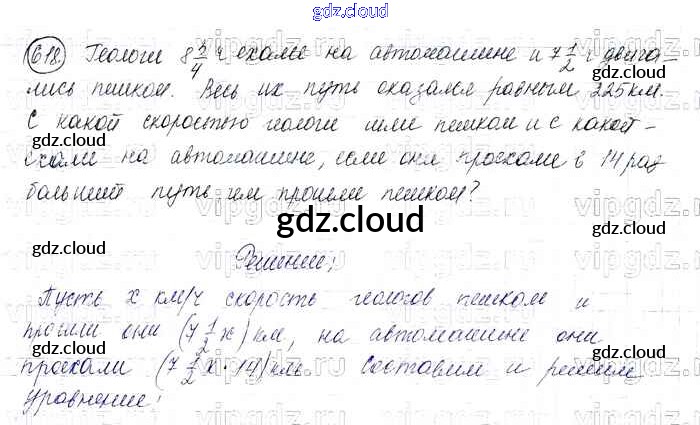 gdz.cloud
618. Геологи 8 3/4 ч ехали на автомашине и 7 1/2 ч двига-
лись пешком. Весь их путь оказался равным 225 км.
С какой скоростью геологи шли пешком и с какой -
ехали на автомашине, если они проехали в 14 раз
больший путь чем прошли пешком?
gdz.cloud
gdz.cloud
gdz.cloud
Решение:
Пусть x км/ч скорость геологов пешком и
прошли они (7 1/2 x) км, на автомашине они
gdz.cloud
gdz.cloud
проехали (7 1/2 x · 14) км. Составим и решим
уравнение: